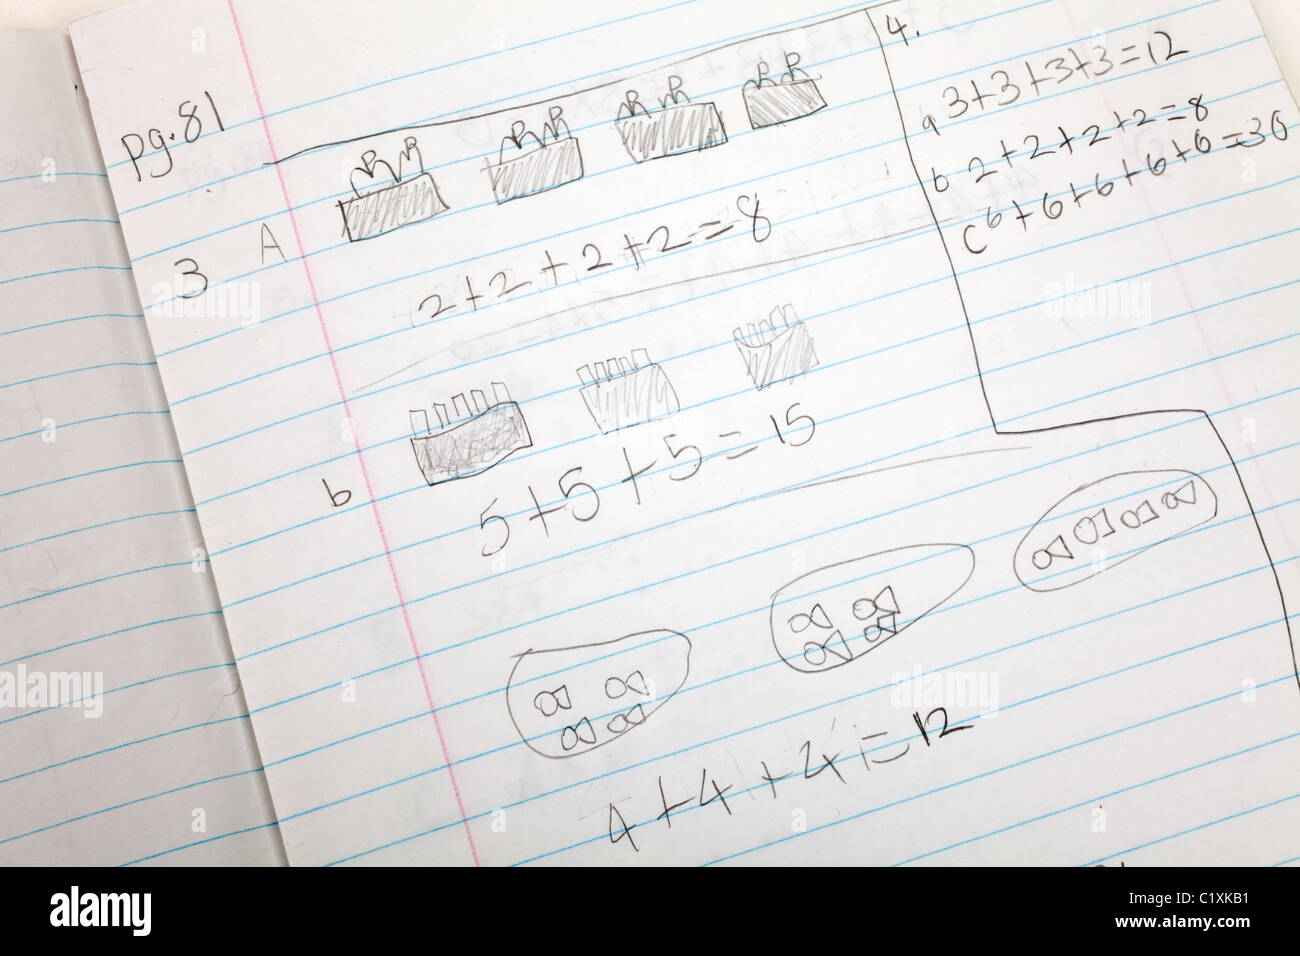 pg.81
3 A
2+2+2+2=8
b
5+5+5=15
4+4+4=12
4.
a 3+3+3+3=12
b 2+2+2+2=8
c 6+6+6+6+6=30
alamy
Image ID: C1XKB1
www.alamy.com